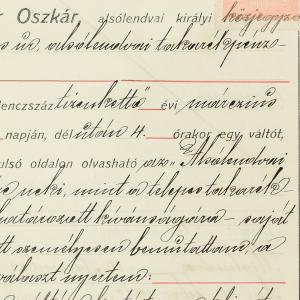 r Oszkár, alsólendvai királyi közjegyző
s úr, alsólendvai takarékpénz-
lenczszáz tizenkettő" évi márczius
napján, délután 4. órakor egy váltót,
ulsó oldalon olvasható az „Alsólendvai
neki, mint a telepes takarék
határozott kívánságára – saját
tt személyesen bemutattam, a
választ nyertem: